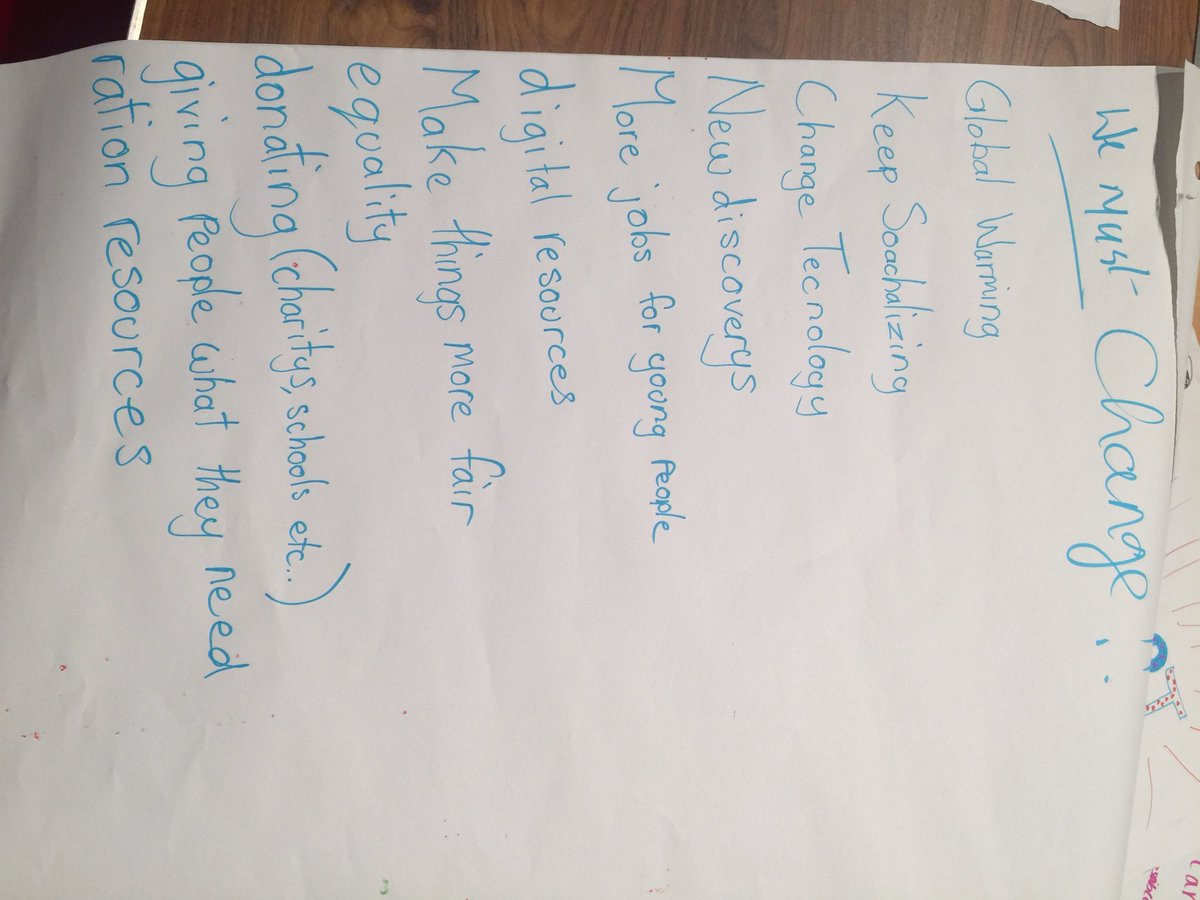 We Must Change :
Global Warming
Keep Soachalizing
Change Tecnology
New discoverys
More jobs for young People
digital resources
Make things more fair
equality
donating (charitys, schools etc..)
giving People what they need
ration resources